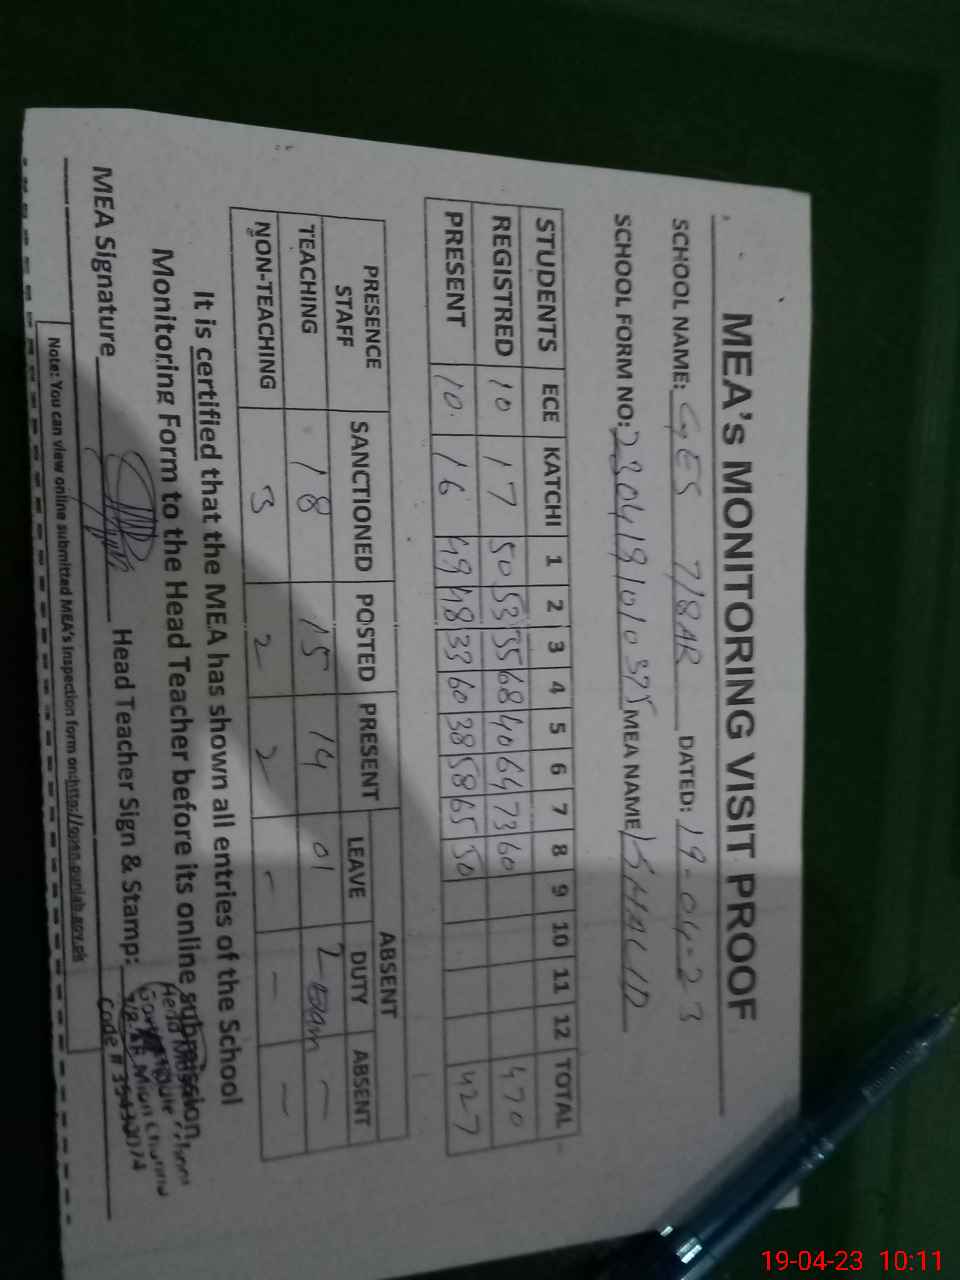 MEA's MONITORING VISIT PROOF
SCHOOL NAME: GES 7/8AR DATED: 19-04-23
SCHOOL FORM NO: MEA NAME KHALID
STUDENTS ECE KATCHI 1 2 3 4 5 6 7 8 9 10 11 12 TOTAL
REGISTRED 10 17 50 53 35 68 40 64 73 60 470
PRESENT 10 16 49 48 33 60 38 58 65 50 427
PRESENCE STAFF SANCTIONED POSTED PRESENT ABSENT
LEAVE DUTY ABSENT
TEACHING 18 15 14 01 2 -
NON-TEACHING 3 2 2 - - -
It is certified that the MEA has shown all entries of the School
Monitoring Form to the Head Teacher before its online submission.
MEA Signature Head Teacher Sign & Stamp:
Head
7/8.AR Mian Channu
Code #
Note: You can view online submitted MEA's Inspection form on:http://open.punjab.gov.pk
19-04-23 10:11